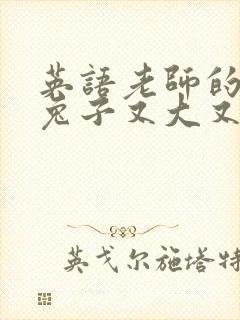 英語老師的
兔子又大又
英戈尔施塔特